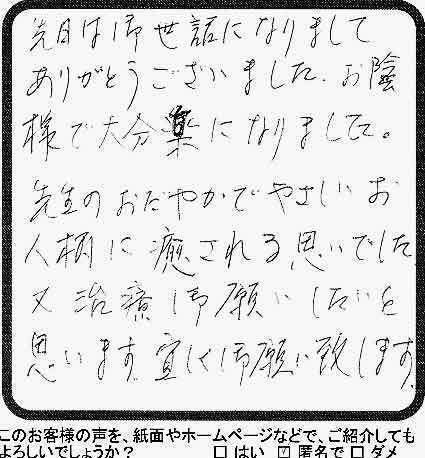 先日は御世話になりまして
ありがとうございました。お陰
様で大分楽になりまして。
先生のおだやかでやさしいお
人柄に癒される思いでした
又治療御願いしたいと
思います。宜しく御願い致します。
このお客様の声を、紙面やホームページなどで、ご紹介しても
よろしいでしょうか? □ はい ☑ 匿名で □ ダメ